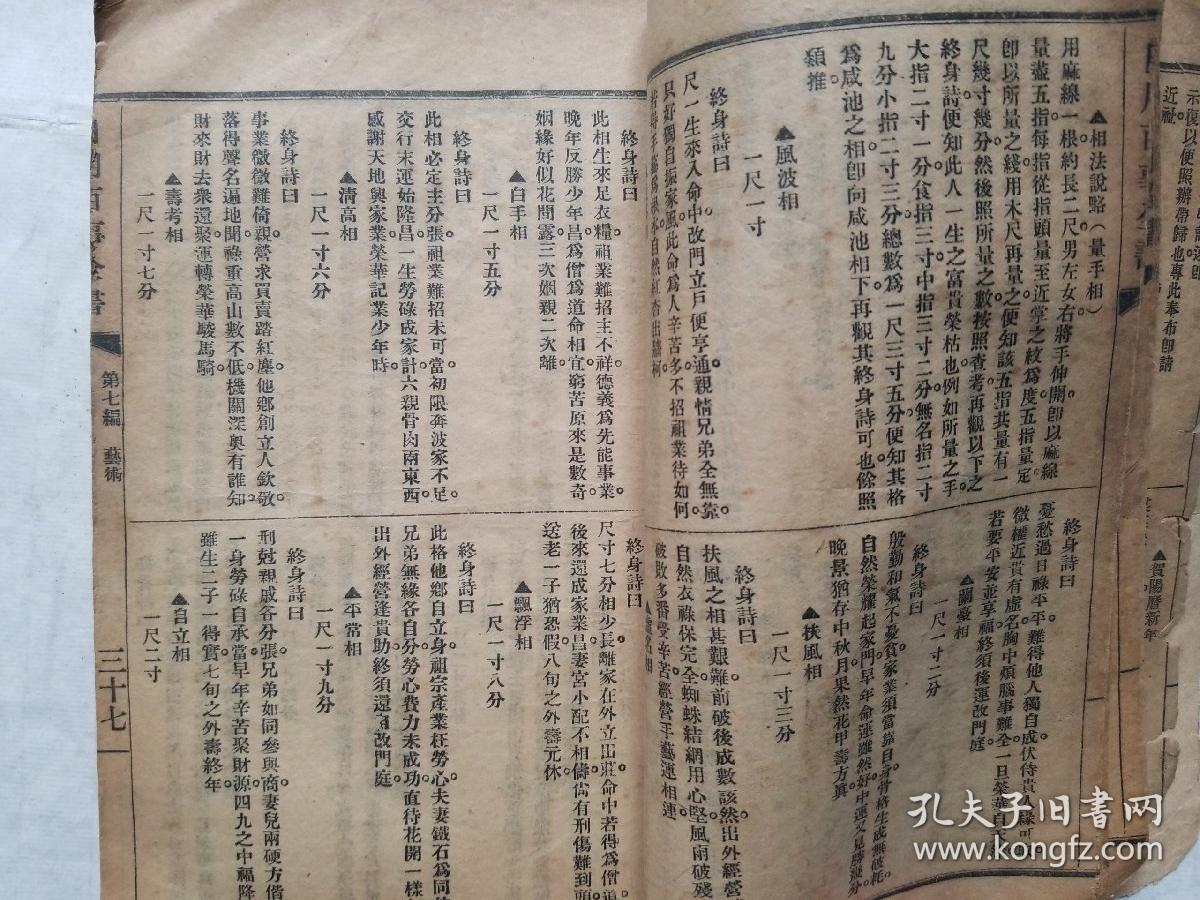 示復以便照辦帶歸也專此奉布即請
近祉
▲賀陽曆新年
▲相法說略(量手相)
用麻線一根約長二尺男左女右將手伸開卽以麻線
量盡五指每指從指頭量至近掌之紋爲度五指量定
卽以所量之綫用木尺再量之便知該五指共量有一
尺幾寸幾分然後照所量之數按照查考再觀以下之
終身詩便知此人一生之富貴榮枯也例如所量之手
大指二寸一分食指三寸中指三寸二分無名指二寸
九分小指二寸三分總數爲一尺三寸五分便知其格
爲咸池之相卽向咸池相下再觀其終身詩可也餘照
類推
▲風波相
一尺一寸
終身詩曰
尺一生來入命中改門立戶便亨通親情兄弟全無靠
只好獨自振家風此命爲人辛苦多不招祖業待如何
終身詩曰
憂愁過日祿平平難得他人獨自成伏侍貴人
微權近貴有虛名胸中煩腦事難全一旦榮華
若要平安並享福終須後運改門庭
▲蘭臺相
一尺一寸二分
終身詩曰
般勤和氣不憂貧家業須當靠自身骨格生成無破耗
自然榮耀起家門早年命運雖然好中運又見勝幾分
晚景猶存中秋月果然花甲壽方眞
▲扶風相
一尺一寸三分
終身詩曰
扶風之相甚艱難前破後成數該然出外經營
自然衣祿保完全蜘蛛結網用心堅風雨破殘
破敗多番受辛苦經營手藝運相連
終身詩曰
此相生來足衣糧祖業難招主不祥德義爲先能事業
晚年反勝少年昌爲僧爲道命相宜窮苦原來是數奇
姻緣好似花間露三次姻親二次離
▲白手相
一尺一寸五分
終身詩曰
此相必定主分張祖業難招未可當初限奔波家不足
交行末運始隆昌一生勞碌成家計六親骨肉兩東西
感謝天地興家業榮華記業少年時
▲淸高相
一尺一寸六分
終身詩曰
事業微微難倚親營求買賣踏紅塵他鄉創立人欽敬
落得聲名遍地聞祿重高山數不低機關深奧有誰知
財來財去衆還聚運轉榮華駿馬騎
▲壽考相
一尺一寸七分
終身詩曰
尺寸七分相少長離家在外立田莊命中若得爲僧道
後來還成家業昌妻宮小配不相儔尙有刑傷難到頭
送老一子猶恐假八旬之外壽元休
▲飄浮相
一尺一寸八分
終身詩曰
此格他鄉自立身祖宗產業枉勞心夫妻鐵石爲同
兄弟無緣各自分勞心費力未成功直待花開一樣
出外經營逢貴助終須還有改門庭
▲平常相
一尺一寸九分
終身詩曰
刑尅親戚各分張兄弟如同參與商妻兒兩硬方偕
一身勞碌自承當早年辛苦聚財源四九之中福降
雖生二子一得實七旬之外壽終年
▲自立相
一尺二寸
第七編 藝術
三十七
孔夫子旧书网
www.kongfz.com